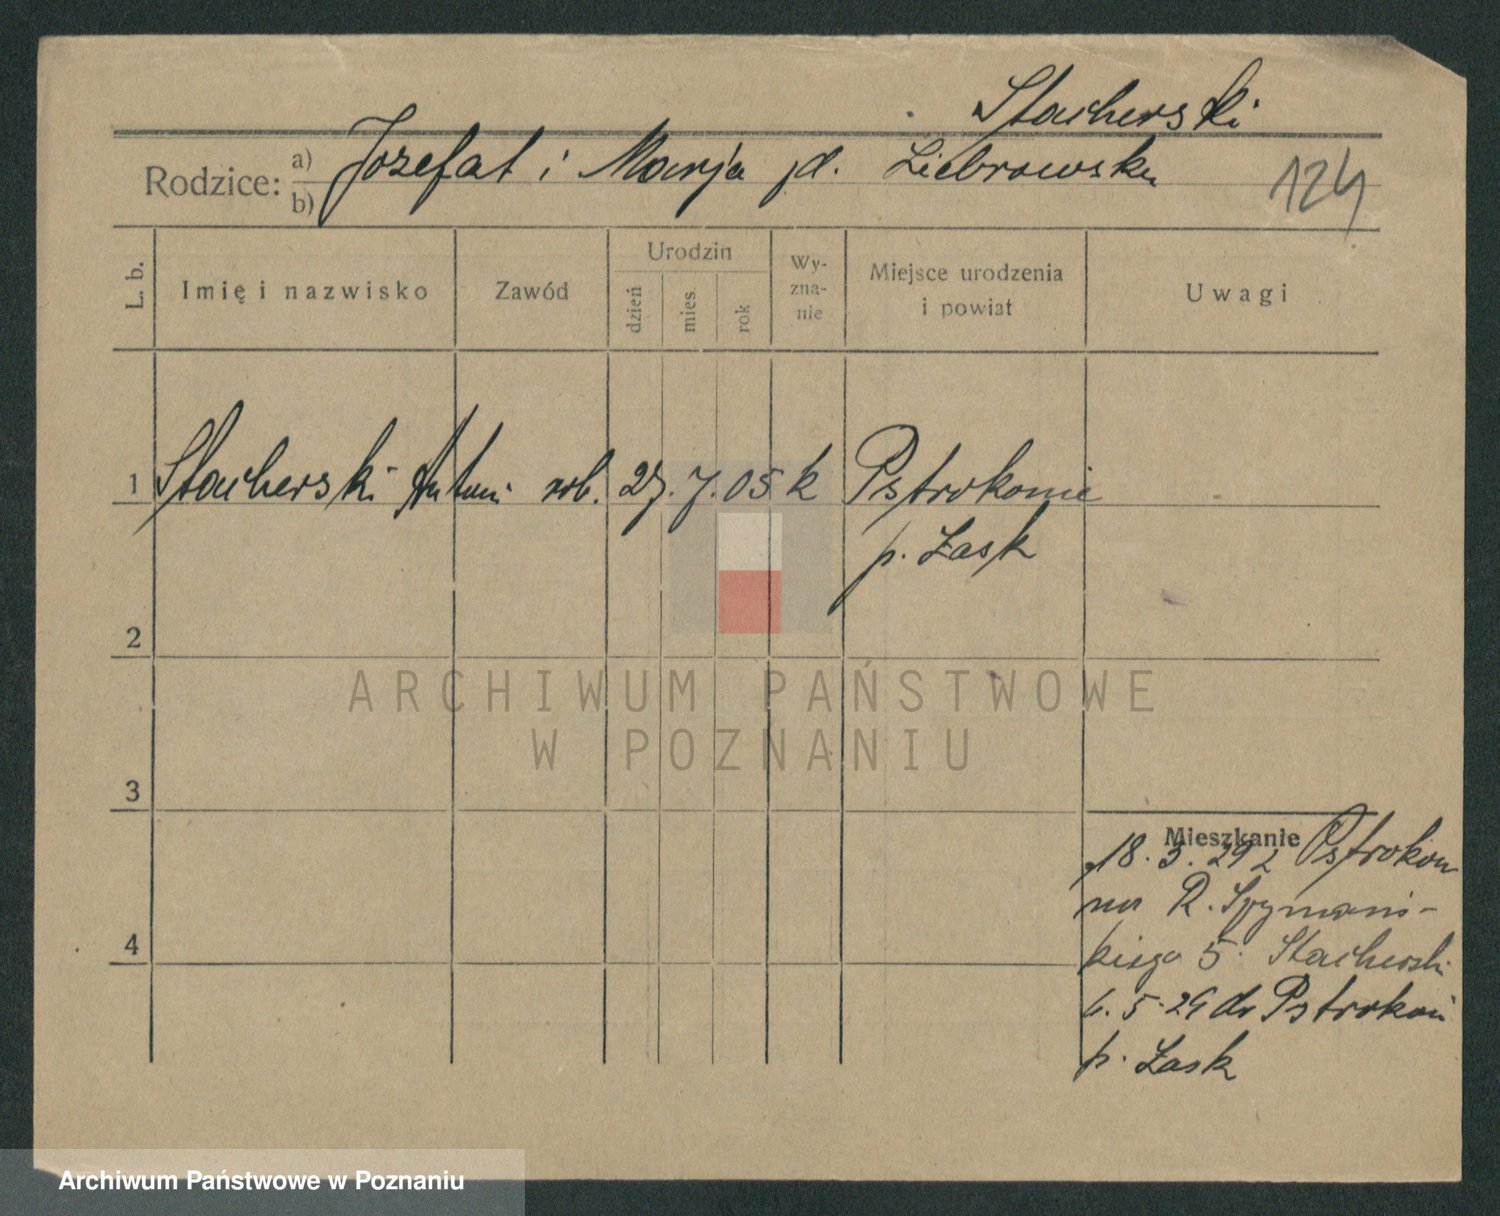 Stacherski
Rodzice: a) Jozefat i Marja
b)
124
L. b. Imię i nazwisko Zawód Urodzin dzień mies. rok Wyznanie Miejsce urodzenia i powiat Uwagi
1 Stacherski Antoni rob. 27. 7. 05 k Pstrokonie
p. Łask
2
3
4
Mieszkanie
18. 3. 29 z Pstrokoń
na R. Szymańs-
kiego 5. Stacherski
6. 5. 29 do Pstrokoń
p. Łask
ARCHIWUM PAŃSTWOWE
W POZNANIU
Archiwum Państwowe w Poznaniu